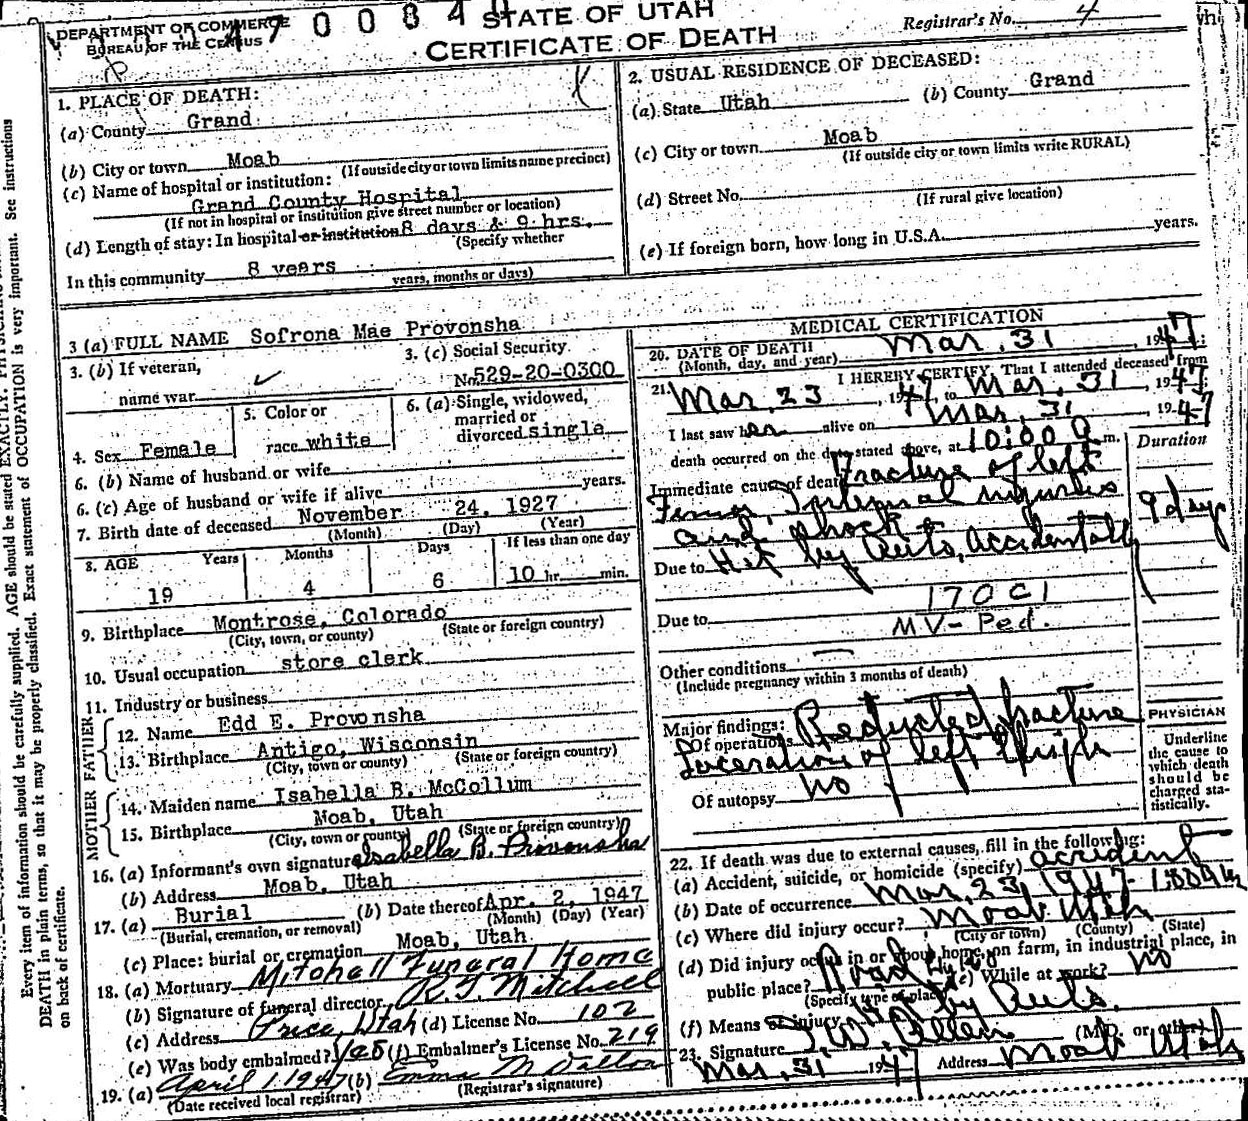 DEPARTMENT OF COMMERCE
BUREAU OF THE CENSUS
470084
STATE OF UTAH
CERTIFICATE OF DEATH
Registrar's No. 4
1. PLACE OF DEATH:
(a) County Grand
(b) City or town Moab
(If outside city or town limits name precinct)
(c) Name of hospital or institution:
Grand County Hospital
(If not in hospital or institution give street number or location)
(d) Length of stay: In hospital or institution 8 days & 9 hrs.
(Specify whether
In this community 8 years
years, months or days)
2. USUAL RESIDENCE OF DECEASED:
(a) State Utah (b) County Grand
(c) City or town Moab
(If outside city or town limits write RURAL)
(d) Street No.
(If rural give location)
(e) If foreign born, how long in U.S.A. years.
3 (a) FULL NAME Sofrona Mae Provonsha
3. (b) If veteran,
name war
3. (c) Social Security
No. 529-20-0300
4. Sex Female
5. Color or
race white
6. (a) Single, widowed,
married or
divorced single
6. (b) Name of husband or wife
6. (c) Age of husband or wife if alive years.
7. Birth date of deceased November 24, 1927
(Month) (Day) (Year)
8. AGE Years Months Days If less than one day
19 4 6 10 hr. min.
9. Birthplace Montrose, Colorado
(City, town, or county) (State or foreign country)
10. Usual occupation store clerk
11. Industry or business
FATHER
12. Name Edd E. Provonsha
13. Birthplace Antigo, Wisconsin
(City, town or county) (State or foreign country)
MOTHER
14. Maiden name Isabella B. McCollum
15. Birthplace Moab, Utah
(City, town or county) (State or foreign country)
16. (a) Informant's own signature Isabella B. Provonsha
(b) Address Moab, Utah
17. (a) Burial (b) Date thereof Apr. 2, 1947
(Burial, cremation, or removal) (Month) (Day) (Year)
(c) Place: burial or cremation Moab, Utah
18. (a) Mortuary Mitchell Funeral Home
(b) Signature of funeral director R. J. Mitchell
(c) Address Price, Utah (d) License No. 102
(e) Was body embalmed? Yes (f) Embalmer's License No. 219
19. (a) April 1, 1947 (b) Emma M Dalton
(Date received local registrar) (Registrar's signature)
MEDICAL CERTIFICATION
20. DATE OF DEATH Mar. 31, 1947
(Month, day, and year)
21. I HEREBY CERTIFY, That I attended deceased from
Mar. 23, 1947, to Mar. 31, 1947
I last saw her alive on Mar. 31, 1947
death occurred on the date stated above, at 10:00 a m.
Duration
Immediate cause of death Fracture of left
Femur, Internal injuries
and shock
9 days
Due to Hit by Auto, Accidentally
170 C1
Due to MV-Ped.
Other conditions
(Include pregnancy within 3 months of death)
Major findings:
Of operations Reducted fracture
Laceration of left thigh
Of autopsy no
PHYSICIAN
Underline
the cause to
which death
should be
charged sta-
tistically.
22. If death was due to external causes, fill in the following:
(a) Accident, suicide, or homicide (specify) accident
(b) Date of occurrence Mar. 23, 1947
(c) Where did injury occur? Moab Utah
(City or town) (County) (State)
(d) Did injury occur in or about home, on farm, in industrial place, in
public place? Road (e) While at work? no
(Specify type of place)
(f) Means of injury by Auto.
23. Signature I. W. Allen (M.D. or other)
Mar. 31 1947 Address Moab Utah
Every item of information should be carefully supplied. AGE should be stated EXACTLY.
DEATH in plain terms, so that it may be properly classified. Exact statement of OCCUPATION is very important. See instructions
on back of certificate.